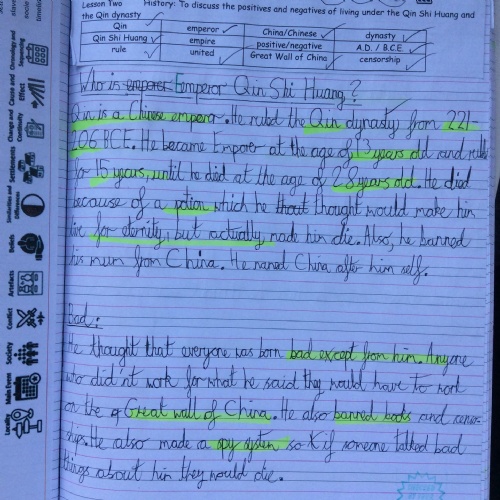 Lesson Two History: To discuss the positives and negatives of living under the Qin Shi Huang and
the Qin dynasty
Qin emperor China/Chinese dynasty
Qin Shi Huang empire positive/negative A.D. / B.C.E
rule united Great Wall of China censorship
Who is emparer Emperor Qin Shi Huang?
Qin is a Chinese emperor. He ruled the Qin dynasty from 221-
206 BCE. He became Emparer at the age of 13 years old and
for 15 years, until he died at the age of 28 years old. He died
because of a potion which he that thought would make him
live for eternity, but actually made him die. Also, he banned
his mum from China. He named China after him self.
Bad:
He thought that everyone was born bad except from him. Anyone
who did'nt work for what he said they would have to work
on the g Great wall of China. He also banned books and censor
ships. He also made a spy system so if someone talked bad
things about him they would die.
Chronology and
Sequencing
Cause and
Effect
Change and
Continuity
Settlements
Similarities and
Differences
Beliefs
Artefacts
Conflict
Society
Main Events
Locality